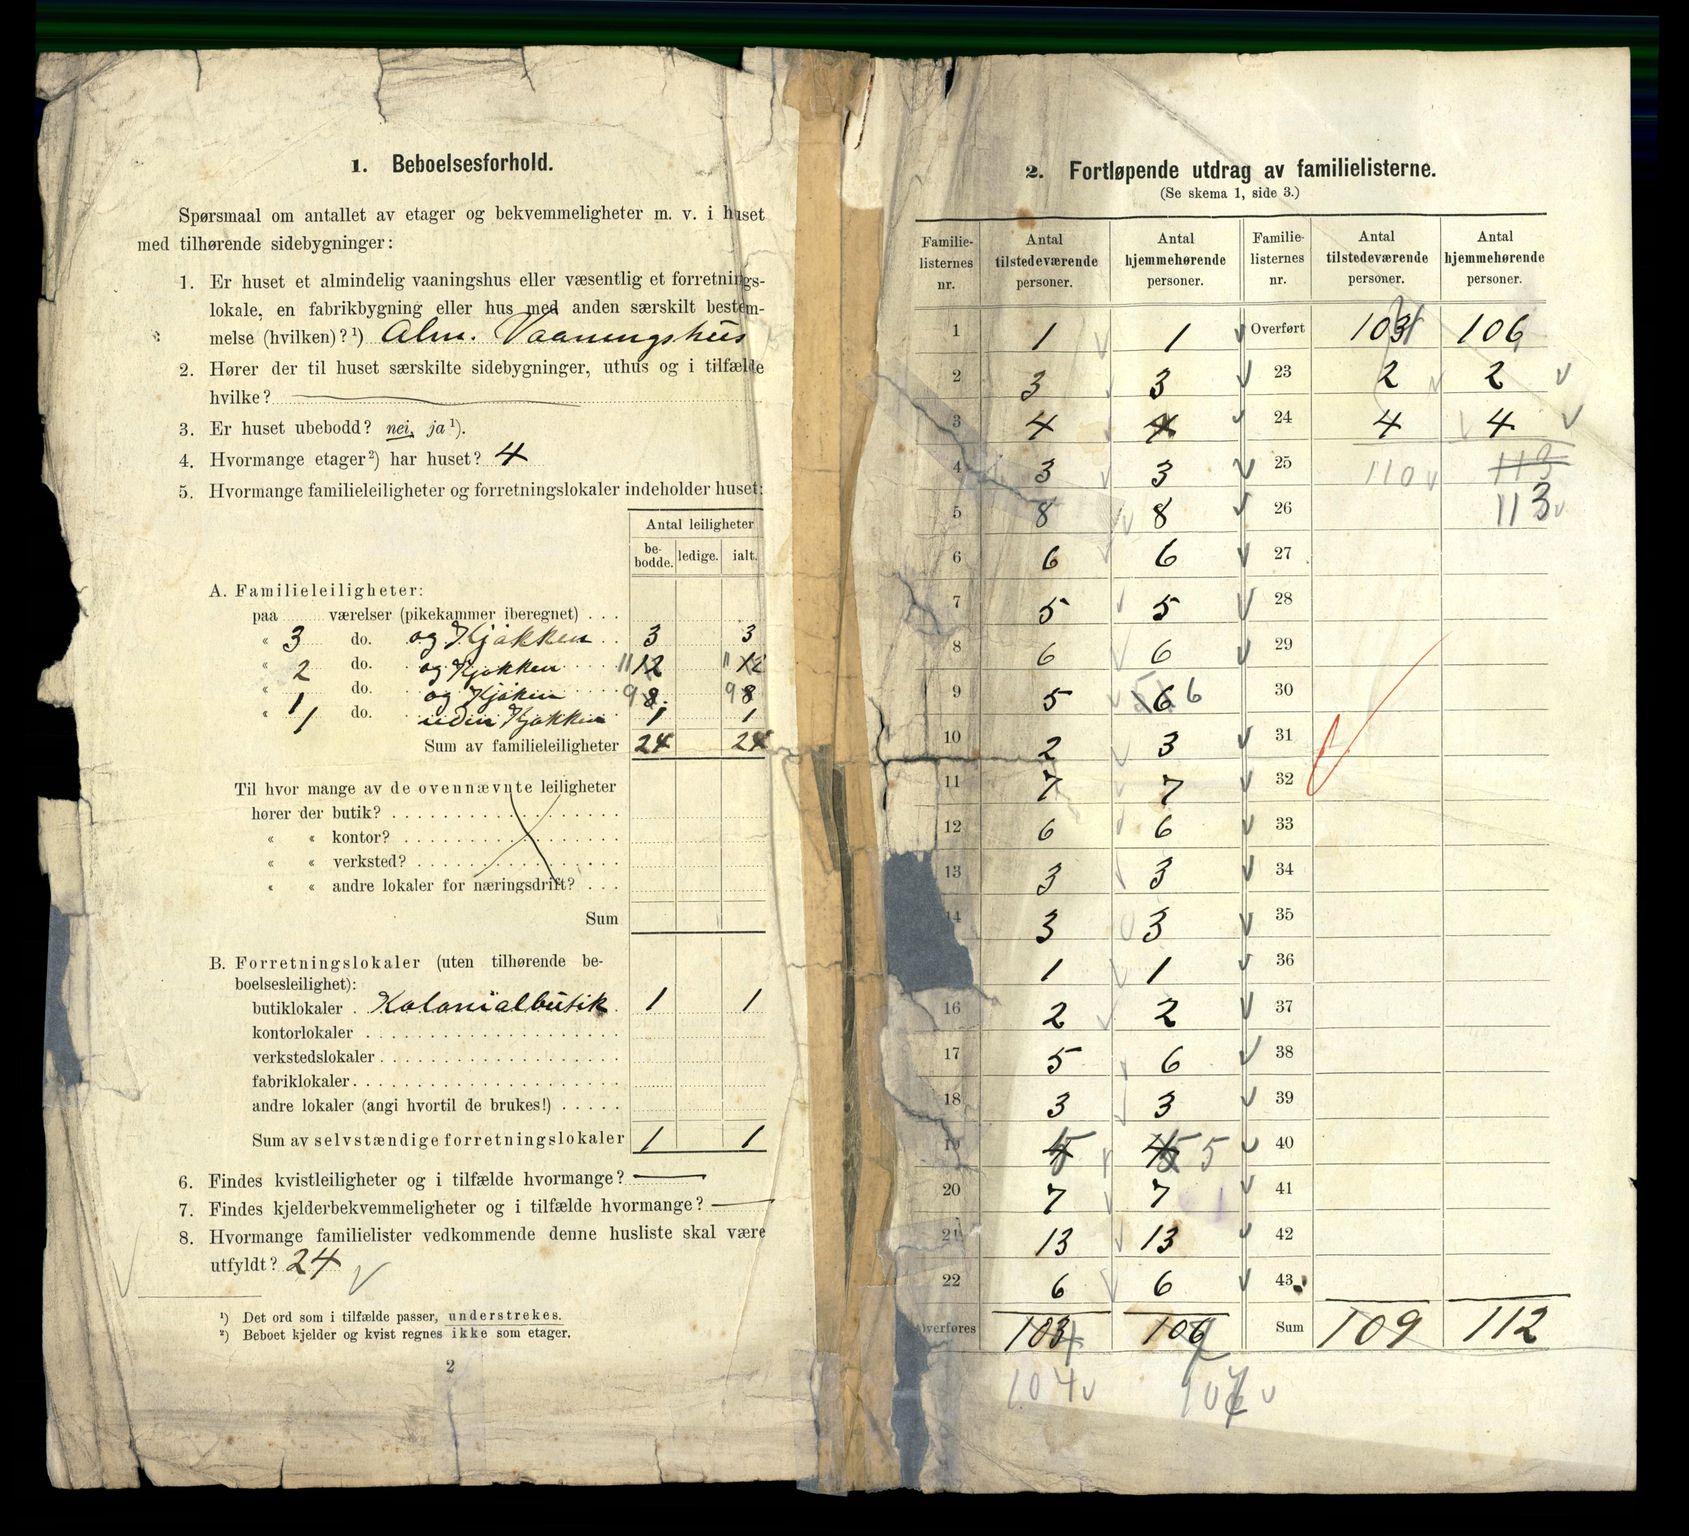 1. Beboelsesforhold.
Spørsmaal om antallet av etager og bekvemmeligheter m. v. i huset
med tilhørende sidebygninger:
1. Er huset et almindelig vaaningshus eller væsentlig et forretnings-
lokale, en fabrikbygning eller hus med anden særskilt bestem-
melse (hvilken)?¹) Alm. Vaaningshus
2. Hører der til huset særskilte sidebygninger, uthus og i tilfælde
hvilke?
3. Er huset ubebodd? nei, ja¹).
4. Hvormange etager²) har huset? 4
5. Hvormange familieleiligheter og forretningslokaler indeholder huset:
Antal leiligheter
be-bodde. ledige. ialt.
A. Familieleiligheter:
paa værelser (pikekammer iberegnet) . . .
« 3 do. og Kjøkken 3 3
« 2 do. og Kjøkken 11 12 11 12
« 1 do. og Kjøken 9 8 9 8
« 1 do. uden Kjøkken 1 1
Sum av familieleiligheter 24 24
Til hvor mange av de ovennævnte leiligheter
hører der butik?
« « kontor?
« « verksted?
« « andre lokaler for næringsdrift? . . .
Sum
B. Forretningslokaler (uten tilhørende be-
boelsesleilighet):
butiklokaler . Kolonialbutik 1 1
kontorlokaler
verkstedslokaler
fabriklokaler
andre lokaler (angi hvortil de brukes!)
Sum av selvstændige forretningslokaler 1 1
6. Findes kvistleiligheter og i tilfælde hvormange?
7. Findes kjelderbekvemmeligheter og i tilfælde hvormange?
8. Hvormange familielister vedkommende denne husliste skal være
utfyldt? 24
¹) Det ord som i tilfælde passer, understrekes.
²) Beboet kjelder og kvist regnes ikke som etager.
2
2. Fortløpende utdrag av familielisterne.
(Se skema 1, side 3.)
Familie- Antal Antal Familie- Antal Antal
listernes tilstedeværende hjemmehørende listernes tilstedeværende hjemmehørende
nr. personer. personer. nr. personer. personer.
1 1 1 Overført 103 106
2 3 3 23 2 2
3 4 4 24 4 4
4 3 3 25 110 113
5 8 8 26 113
6 6 6 27
7 5 5 28
8 6 6 29
9 5 6 6 30
10 2 3 31
11 7 7 32
12 6 6 33
13 3 3 34
14 3 3 35
1 1 36
16 2 2 37
17 5 6 38
18 3 3 39
19 5 5 5 40
20 7 7 41
21 13 13 42
22 6 6 43
Overføres 103 106 Sum 109 112
104 107